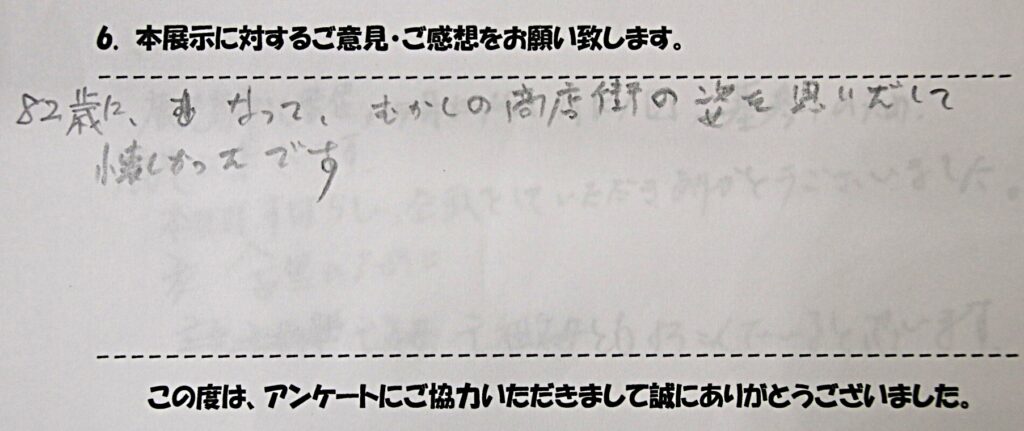 6. 本展示に対するご意見・ご感想をお願い致します。
82歳に、もなって、むかしの商店街の姿を思いだして
懐しかったです
この度は、アンケートにご協力いただきまして誠にありがとうございました。